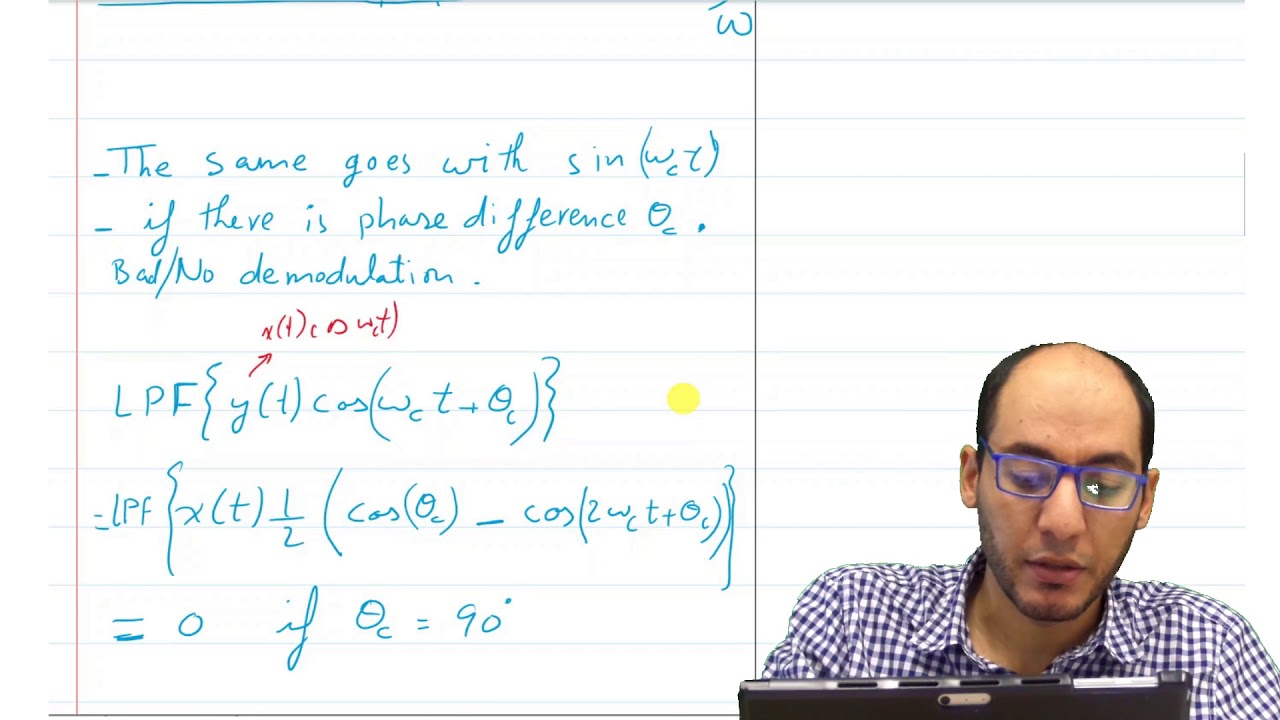 ω
- The same goes with sin(ω_c t)
- if there is phase difference θ_c .
Bad/No demodulation .
x(t) cos ω_c t)
LPF{y(t) cos(ω_c t + θ_c)}
= LPF {x(t) 1/2 (cos(θ_c) - cos(2ω_c t + θ_c))}
= 0 if θ_c = 90°